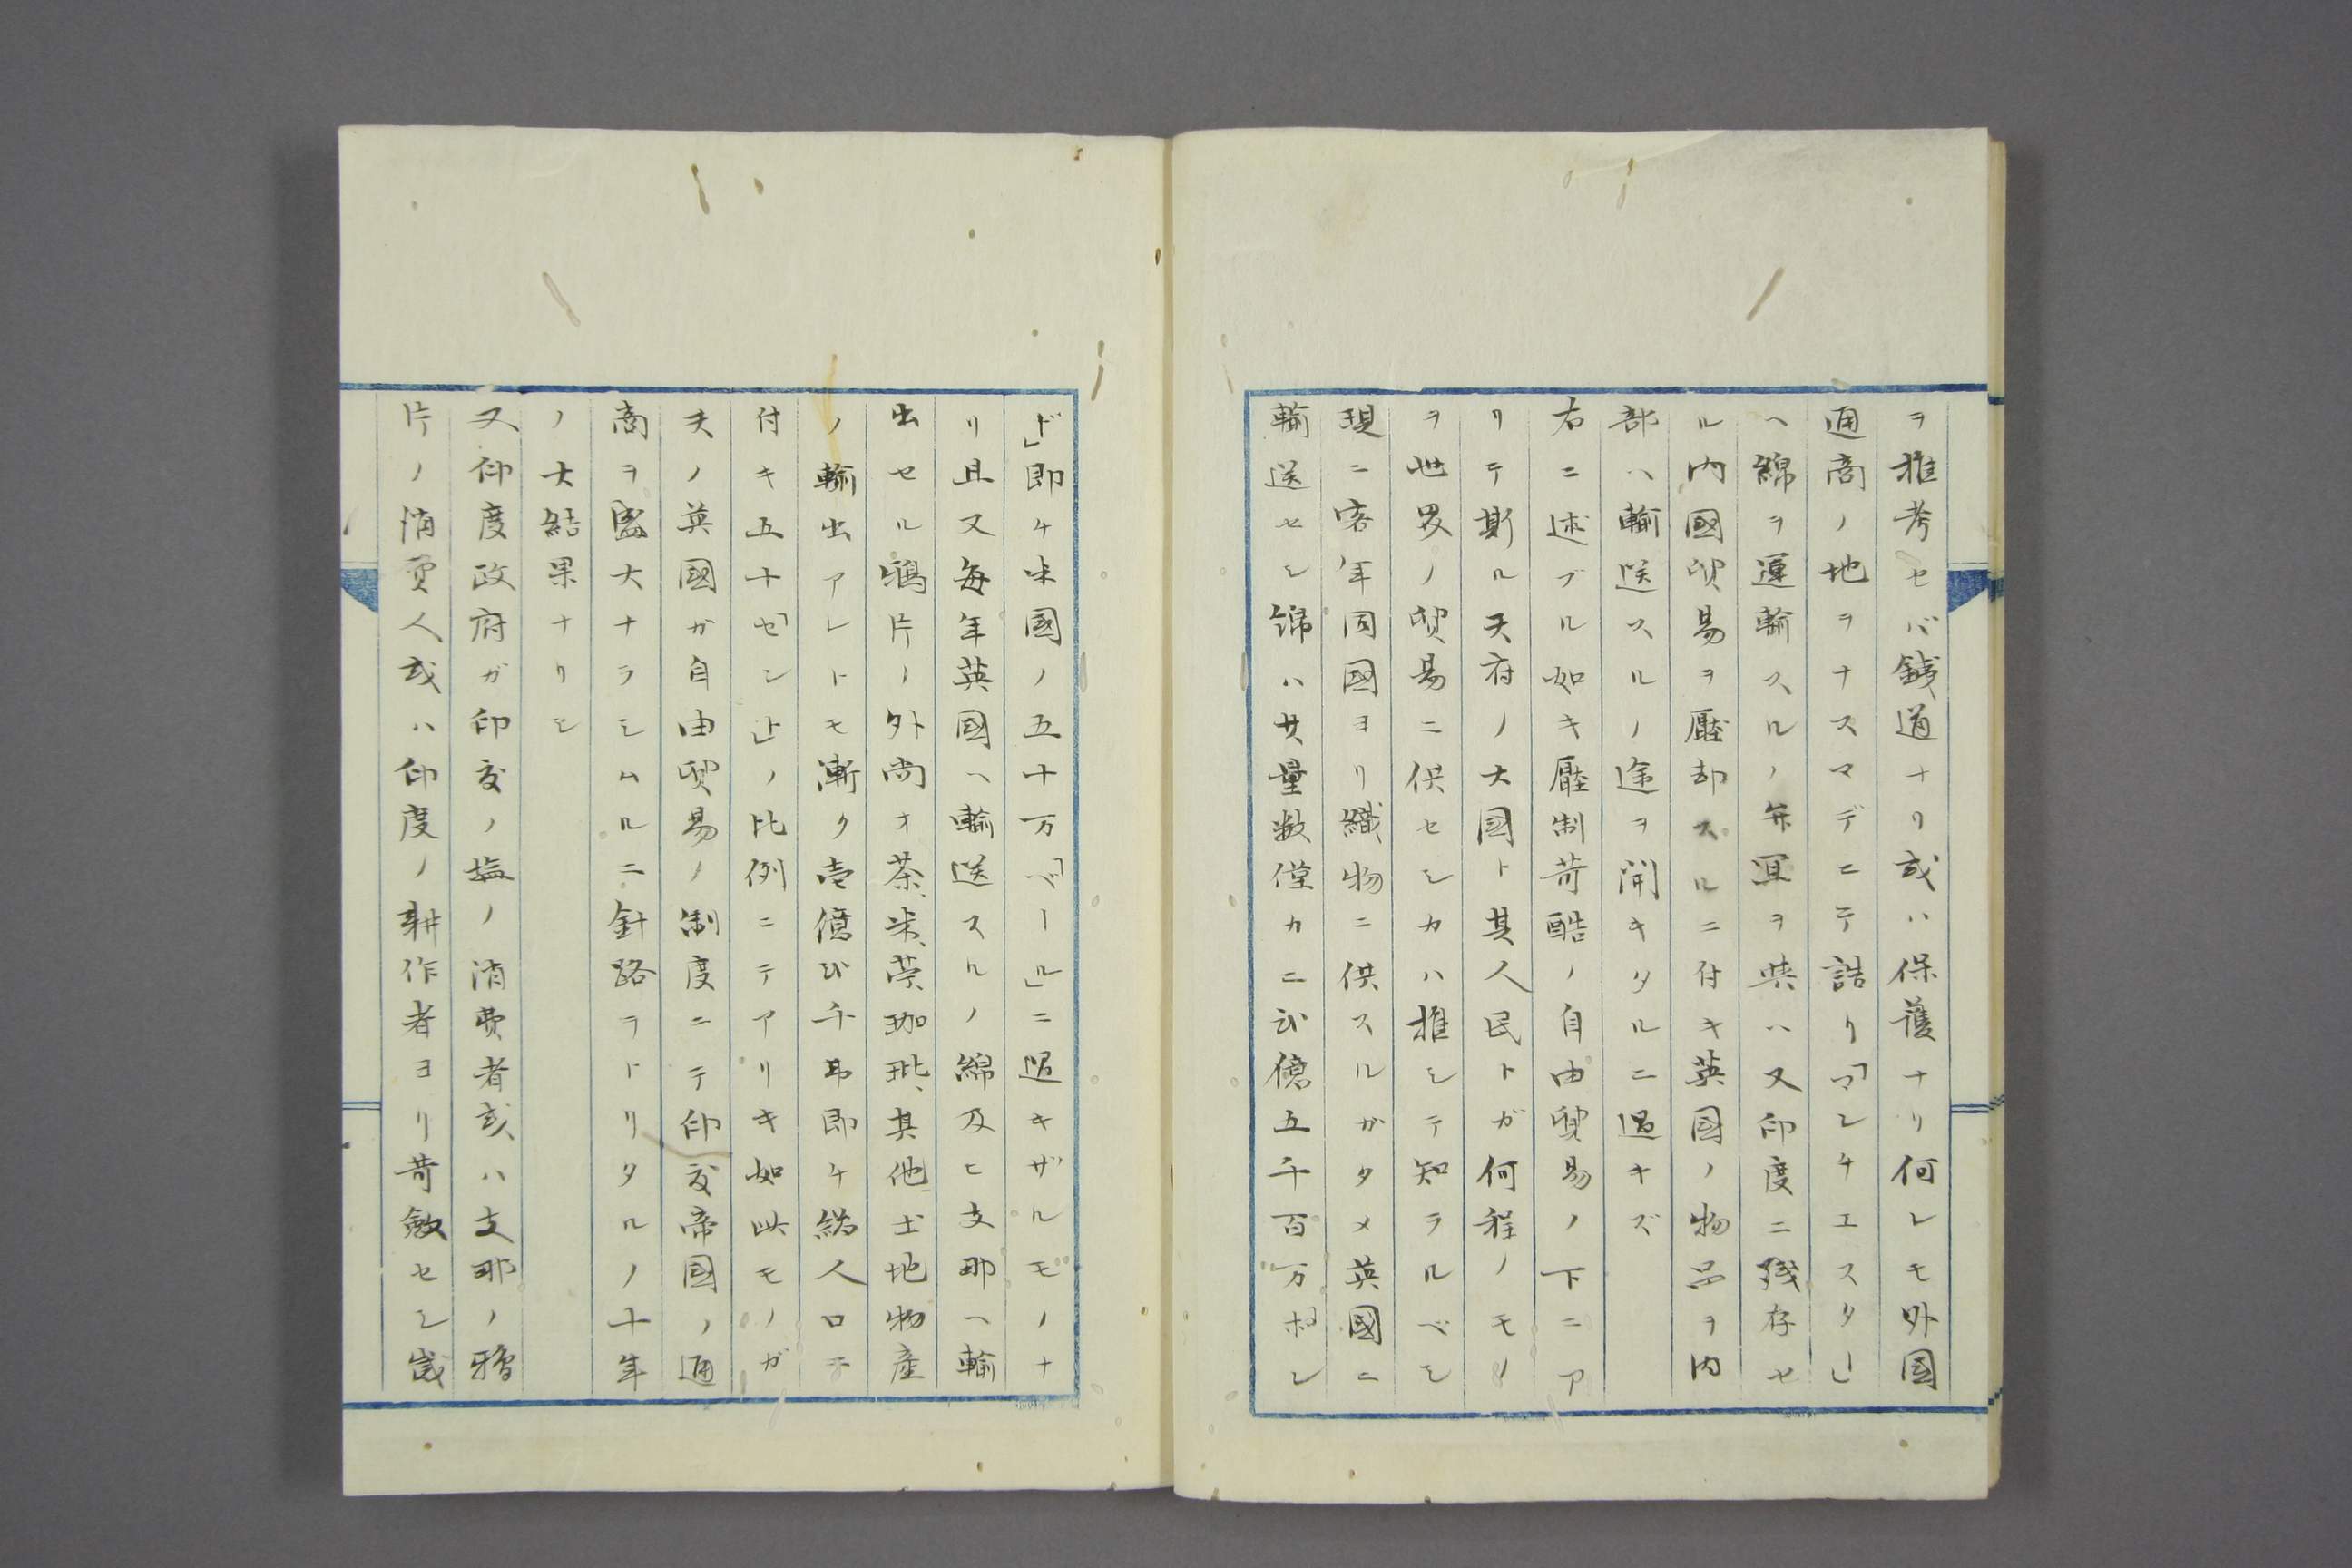 ヲ推考セバ銕道ナリ或ハ保護ナリ何レモ外国
通商ノ地ヲナスマデニテ詰リ「マンチエスタ」
ヘ綿ヲ運輸スルノ弁冝ヲ與ヘ又印度ニ残存セ
ル内國貿易ヲ壓却スルニ付キ英国ノ物品ヲ内
部ヘ輸送スルノ途ヲ開キタルニ過キズ
右ニ述ブル如キ壓制苛酷ノ自由貿易ノ下ニア
リテ斯ル天府ノ大國ト其人民トガ何程ノモノ
ヲ世界ノ貿易ニ供セシカハ推シテ知ラルベシ
現ニ客年同國ヨリ織物ニ供スルガタメ英國ニ
輸送セシ錦ハ其量数僅カニ弐億五千百万ポン
ド」即ケ米國ノ五十万「ベール」ニ過キザルモノナ
リ且又毎年英國ヘ輸送スルノ綿及ヒ支那ヘ輸
出セル鴉片ノ外尚オ茶、米、藍、珈琲、其他土地物産
ノ輸出アレトモ漸ク壱億弐千弗即ケ給人口ニ
付キ五十「セント」ノ比例ニテアリキ如此モノガ
夫ノ英國ガ自由貿易ノ制度ニテ印度帝國ノ通
商ヲ盛大ナラシムルニ針路ヲトリタルノ十年
ノ大結果ナリシ
又印度政府ガ印度ノ塩ノ消費者或ハ支那ノ鴉
片ノ消費人或ハ印度ノ耕作者ヨリ苛斂セシ歳